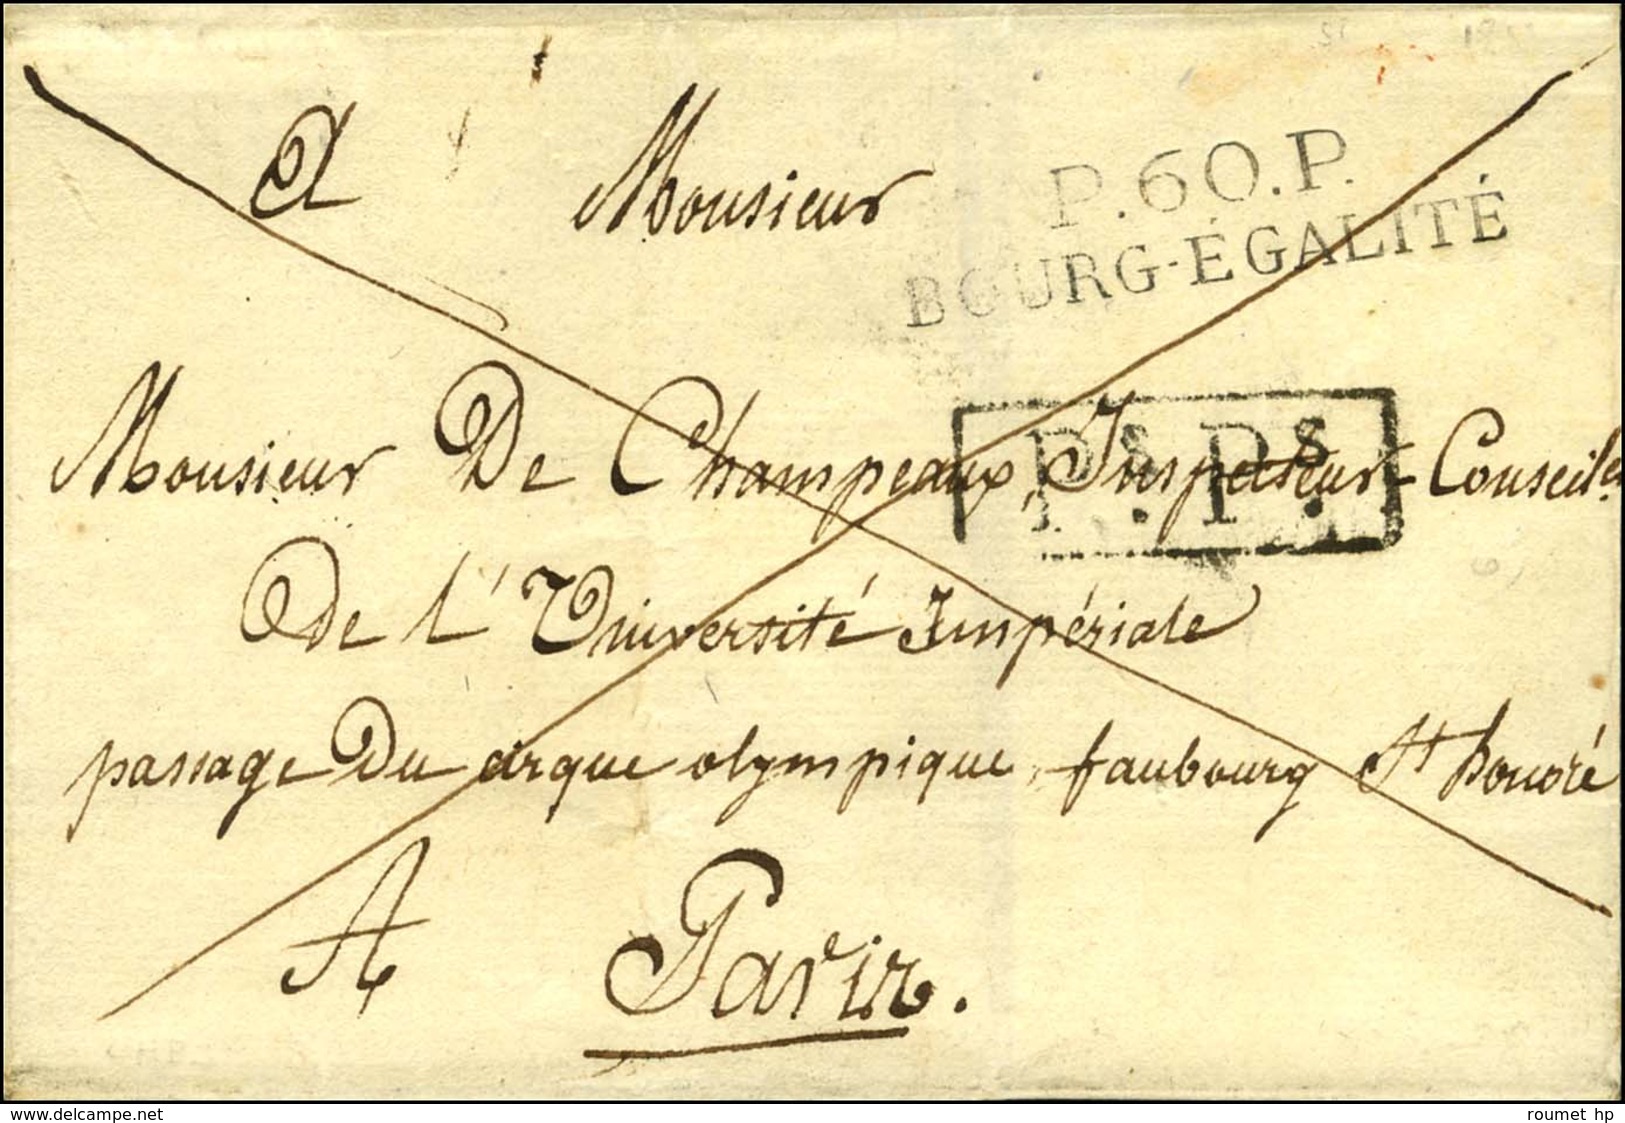 A Monsieur
P.60.P.
BOURG-ÉGALITÉ
Monsieur De Champeaux, Inspecteur-Conseiler
Ps. Ps.
De l'Université Impériale
passage Du cirque olympique, faubourg St honoré
A Paris.
www.delcampe.net
roumet hp